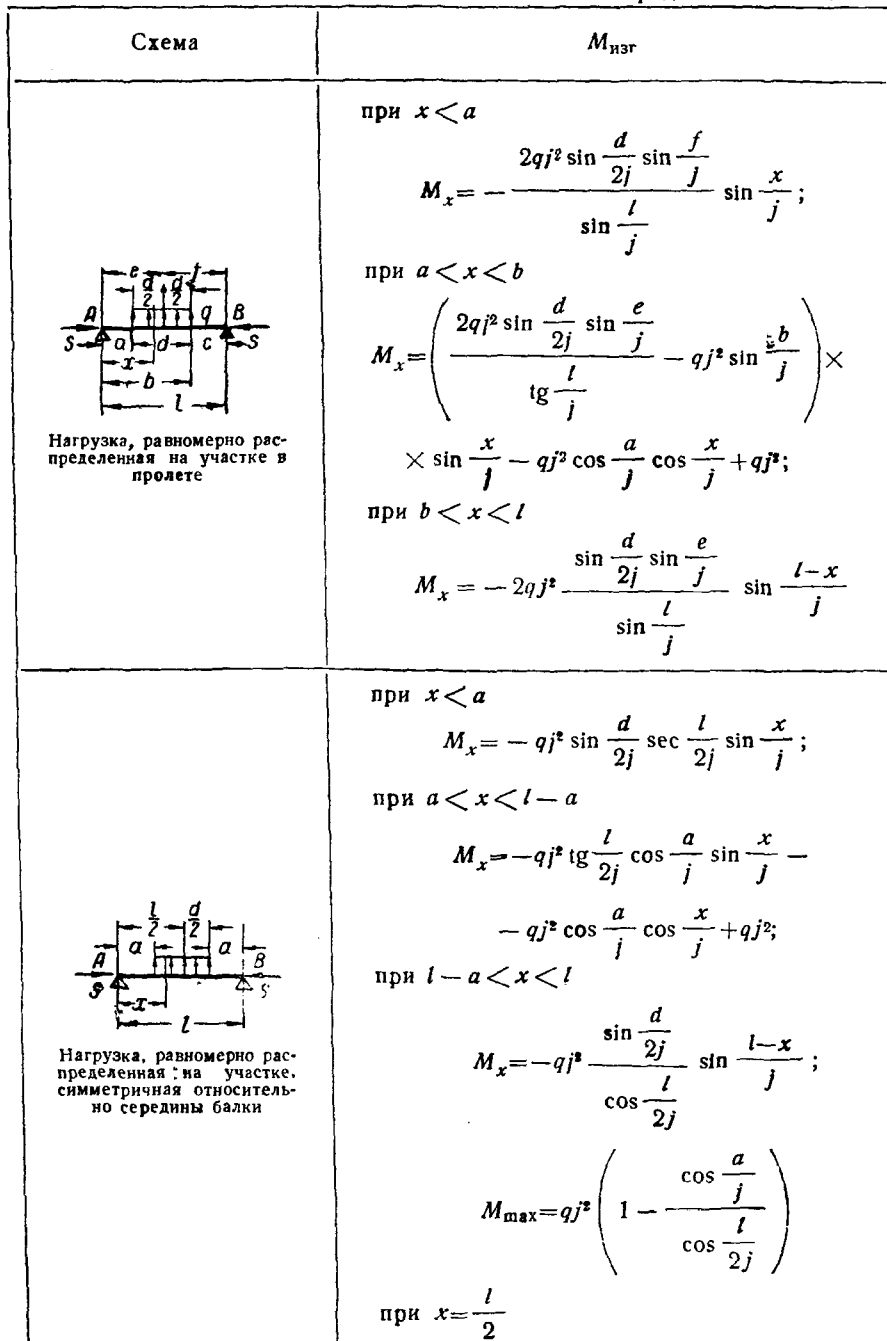 Схема
M изг
e f
d/2 d/2
A q B
S a d c S
x
b
l
Нагрузка, равномерно рас-
пределенная на участке в
пролете
при x < a
M_x = − (2qj² sin d/2j sin f/j) / (sin l/j) sin x/j ;
при a < x < b
M_x = ( (2qj² sin d/2j sin e/j) / (tg l/j) − qj² sin b/j ) ×
× sin x/j − qj² cos a/j cos x/j + qj²;
при b < x < l
M_x = − 2qj² (sin d/2j sin e/j) / (sin l/j) sin (l−x)/j
l/2 d/2
a a
A B
S S
x
l
Нагрузка, равномерно рас-
пределенная на участке,
симметричная относитель-
но середины балки
при x < a
M_x = − qj² sin d/2j sec l/2j sin x/j ;
при a < x < l − a
M_x = −qj² tg l/2j cos a/j sin x/j −
− qj² cos a/j cos x/j + qj²;
при l − a < x < l
M_x = −qj² (sin d/2j) / (cos l/2j) sin (l−x)/j ;
M_max = qj² ( 1 − (cos a/j) / (cos l/2j) )
при x = l/2